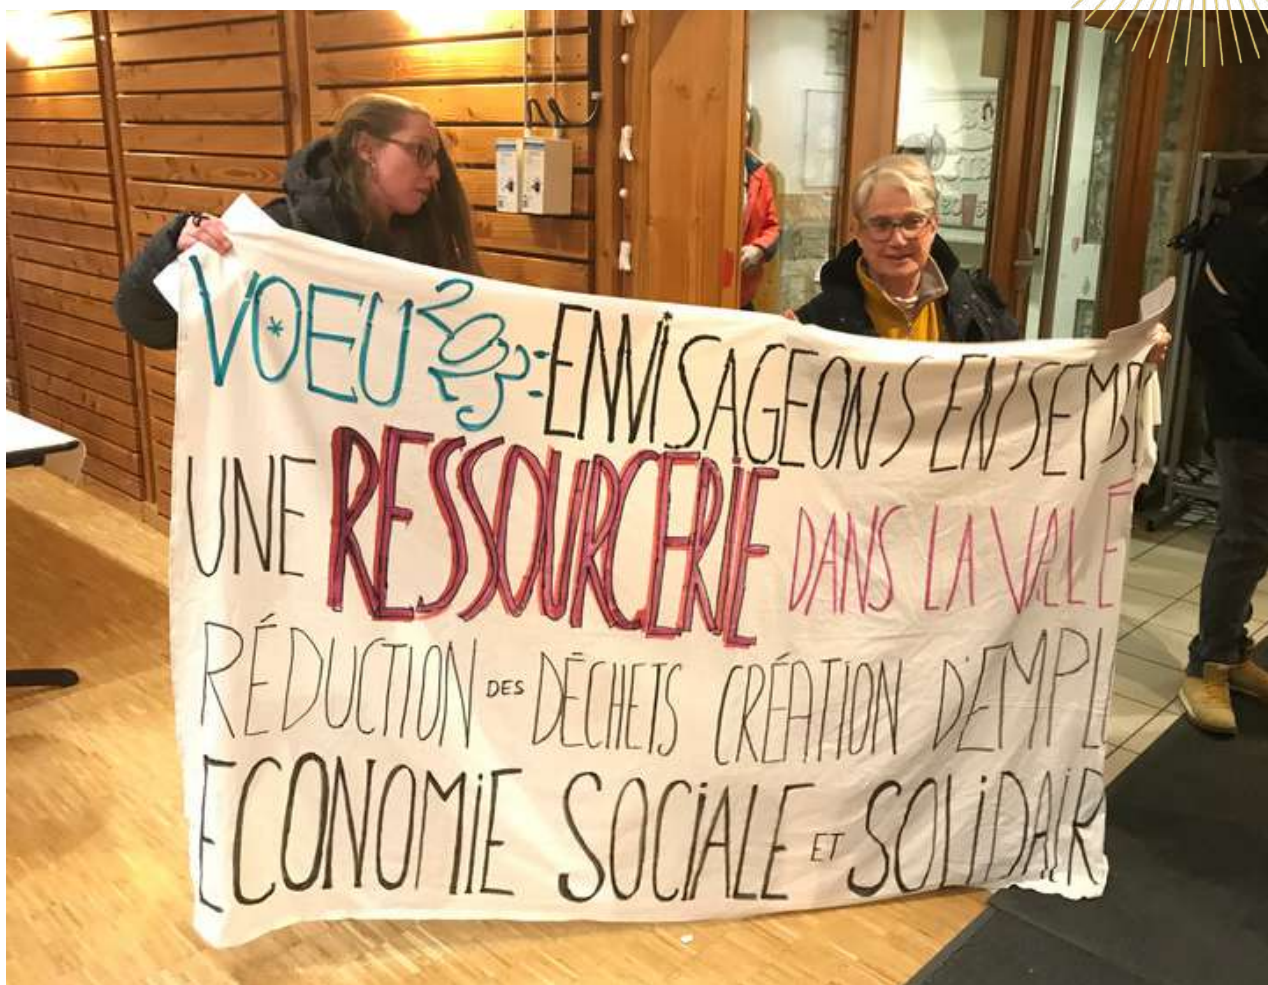 VOEU : ENVISAGEONS ENSEMB
UNE RESSOURCERIE DANS LA VALLÉ
RÉDUCTION DES DÉCHETS CRÉATION D'EMPL
ECONOMIE SOCIALE ET SOLIDAIR